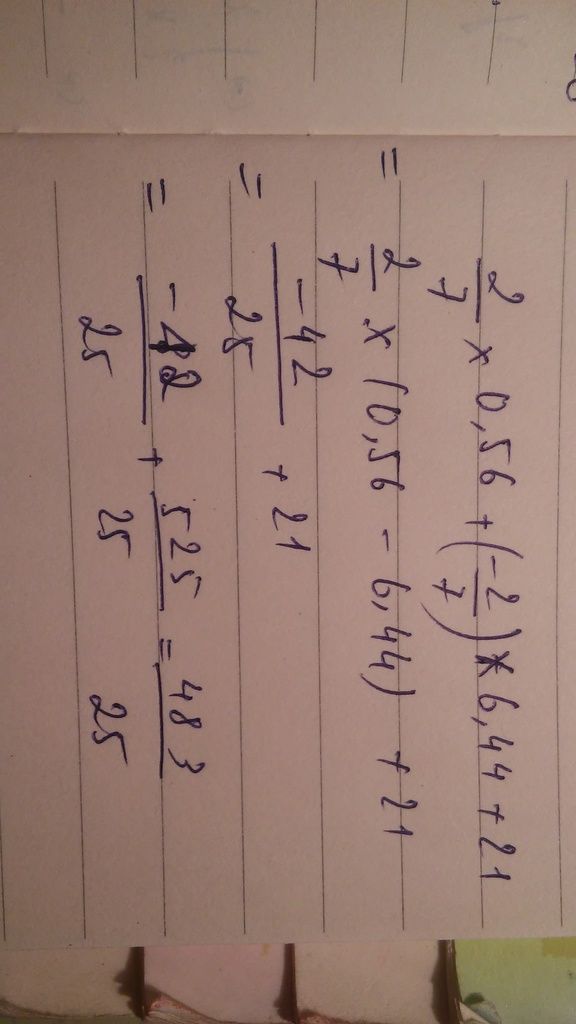 2/7 x 0,56 + (-2/7) x 6,44 + 21
= 2/7 x (0,56 - 6,44) + 21
= -42/25 + 21
= -42/25 + 525/25 = 483/25